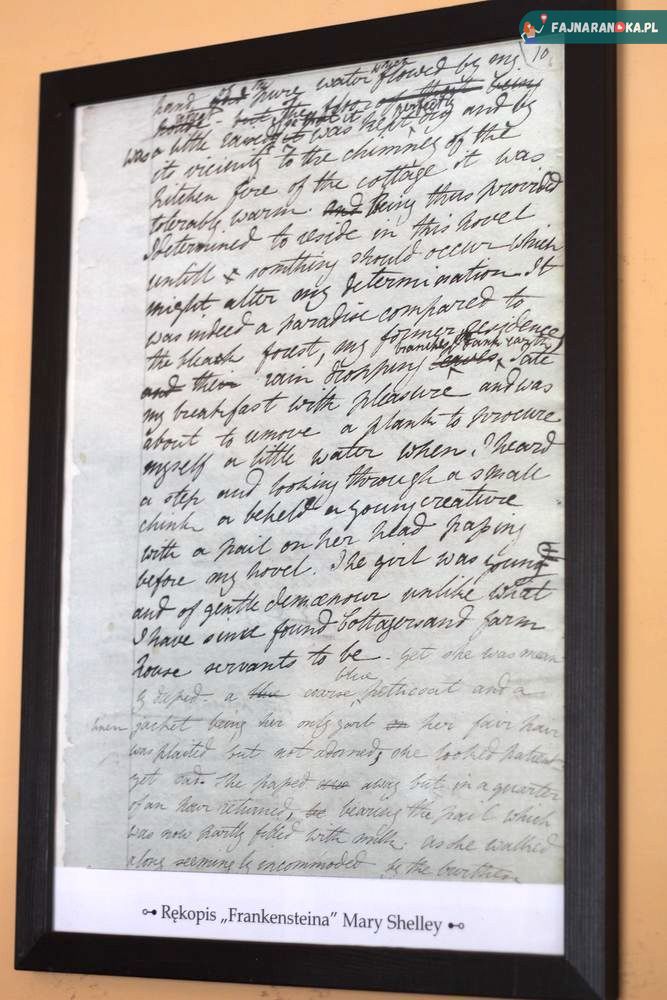 FAJNARANOKA.PL
10
hand pure water which flowed by my
was a little raised it was kept perfectly dry and by
its vicinity to the chimney of the
kitchen fire of the cottage it was
tolerably warm. and Being thus provided
I determined to reside in this hovel
untill & somthing should occur which
might alter my determination. It
was indeed a paradise compared to
the bleak forest, my former residence
branches dank earth
and their rain dropping leaves. I ate
my breakfast with pleasure and was
about to remove a plank to procure
myself a little water when, I heard
a step and looking through a small
chink a beheld a young creature
with a pail on her head passing
before my hovel. The girl was young
and of gentle demænour unlike what
I have since found Cottagers and farm
house servants to be. Yet she was mean
blue
ly dressed a blue coarse petticoat and a
linen jacket being her only garb her fair hair
was plaited but not adorned, she looked patient
yet sad. She passed away but in a quarter
of an hour returned, bearing the pail which
was now partly filled with milk. as she walked
along seemingly incommoded by the burthen
Rękopis „Frankensteina” Mary Shelley